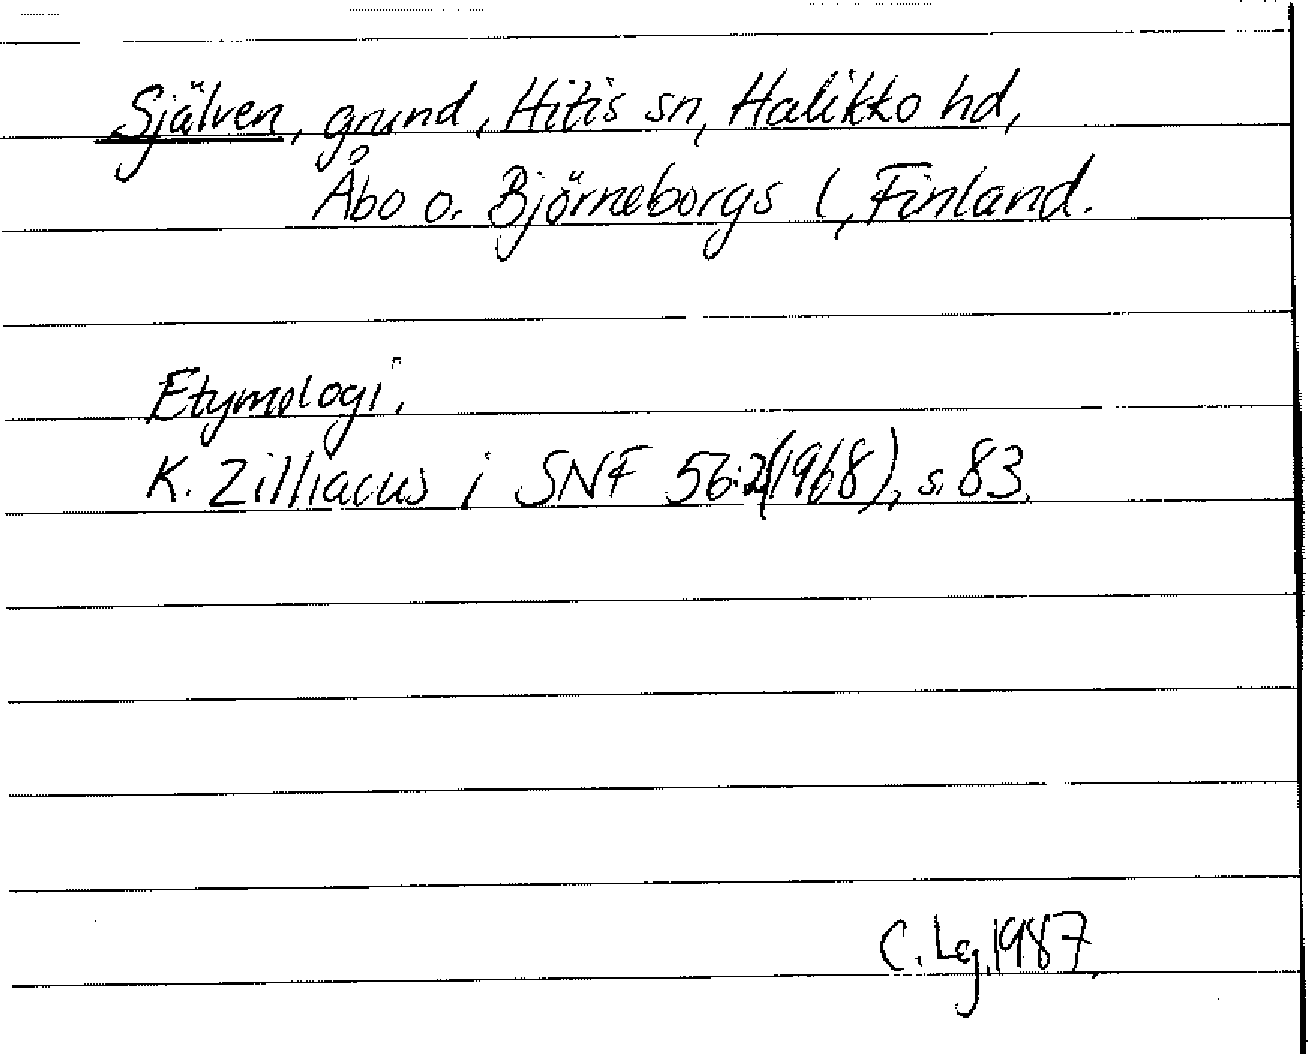 Själven, grund, Hitis sn, Halikko hd,
Åbo o. Björneborgs l, Finland.
Etymologi.
K. Zilliacus i SNF 56:2(1968), s. 83.
C. Lg. 1987.